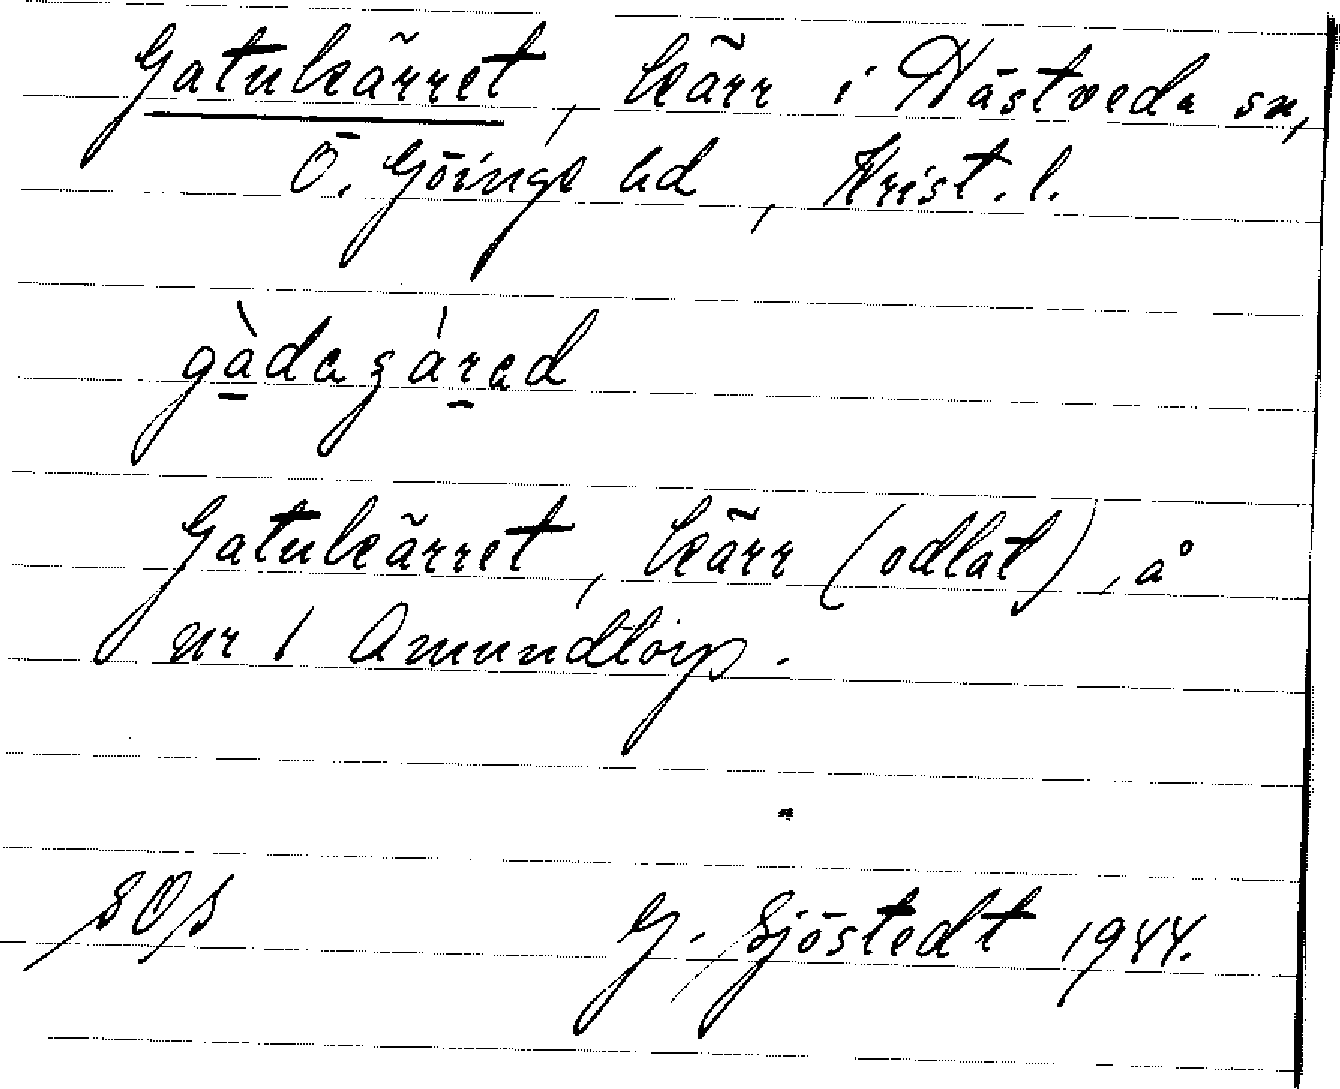 Gatukärret, kärr i Hästveda sn,
Ö. Göinge hd, Krist. l.
gàdaʒárad
Gatukärret, kärr (odlat), å
nr 1 Amundtorp.
SOS G. Sjöstedt 1944.